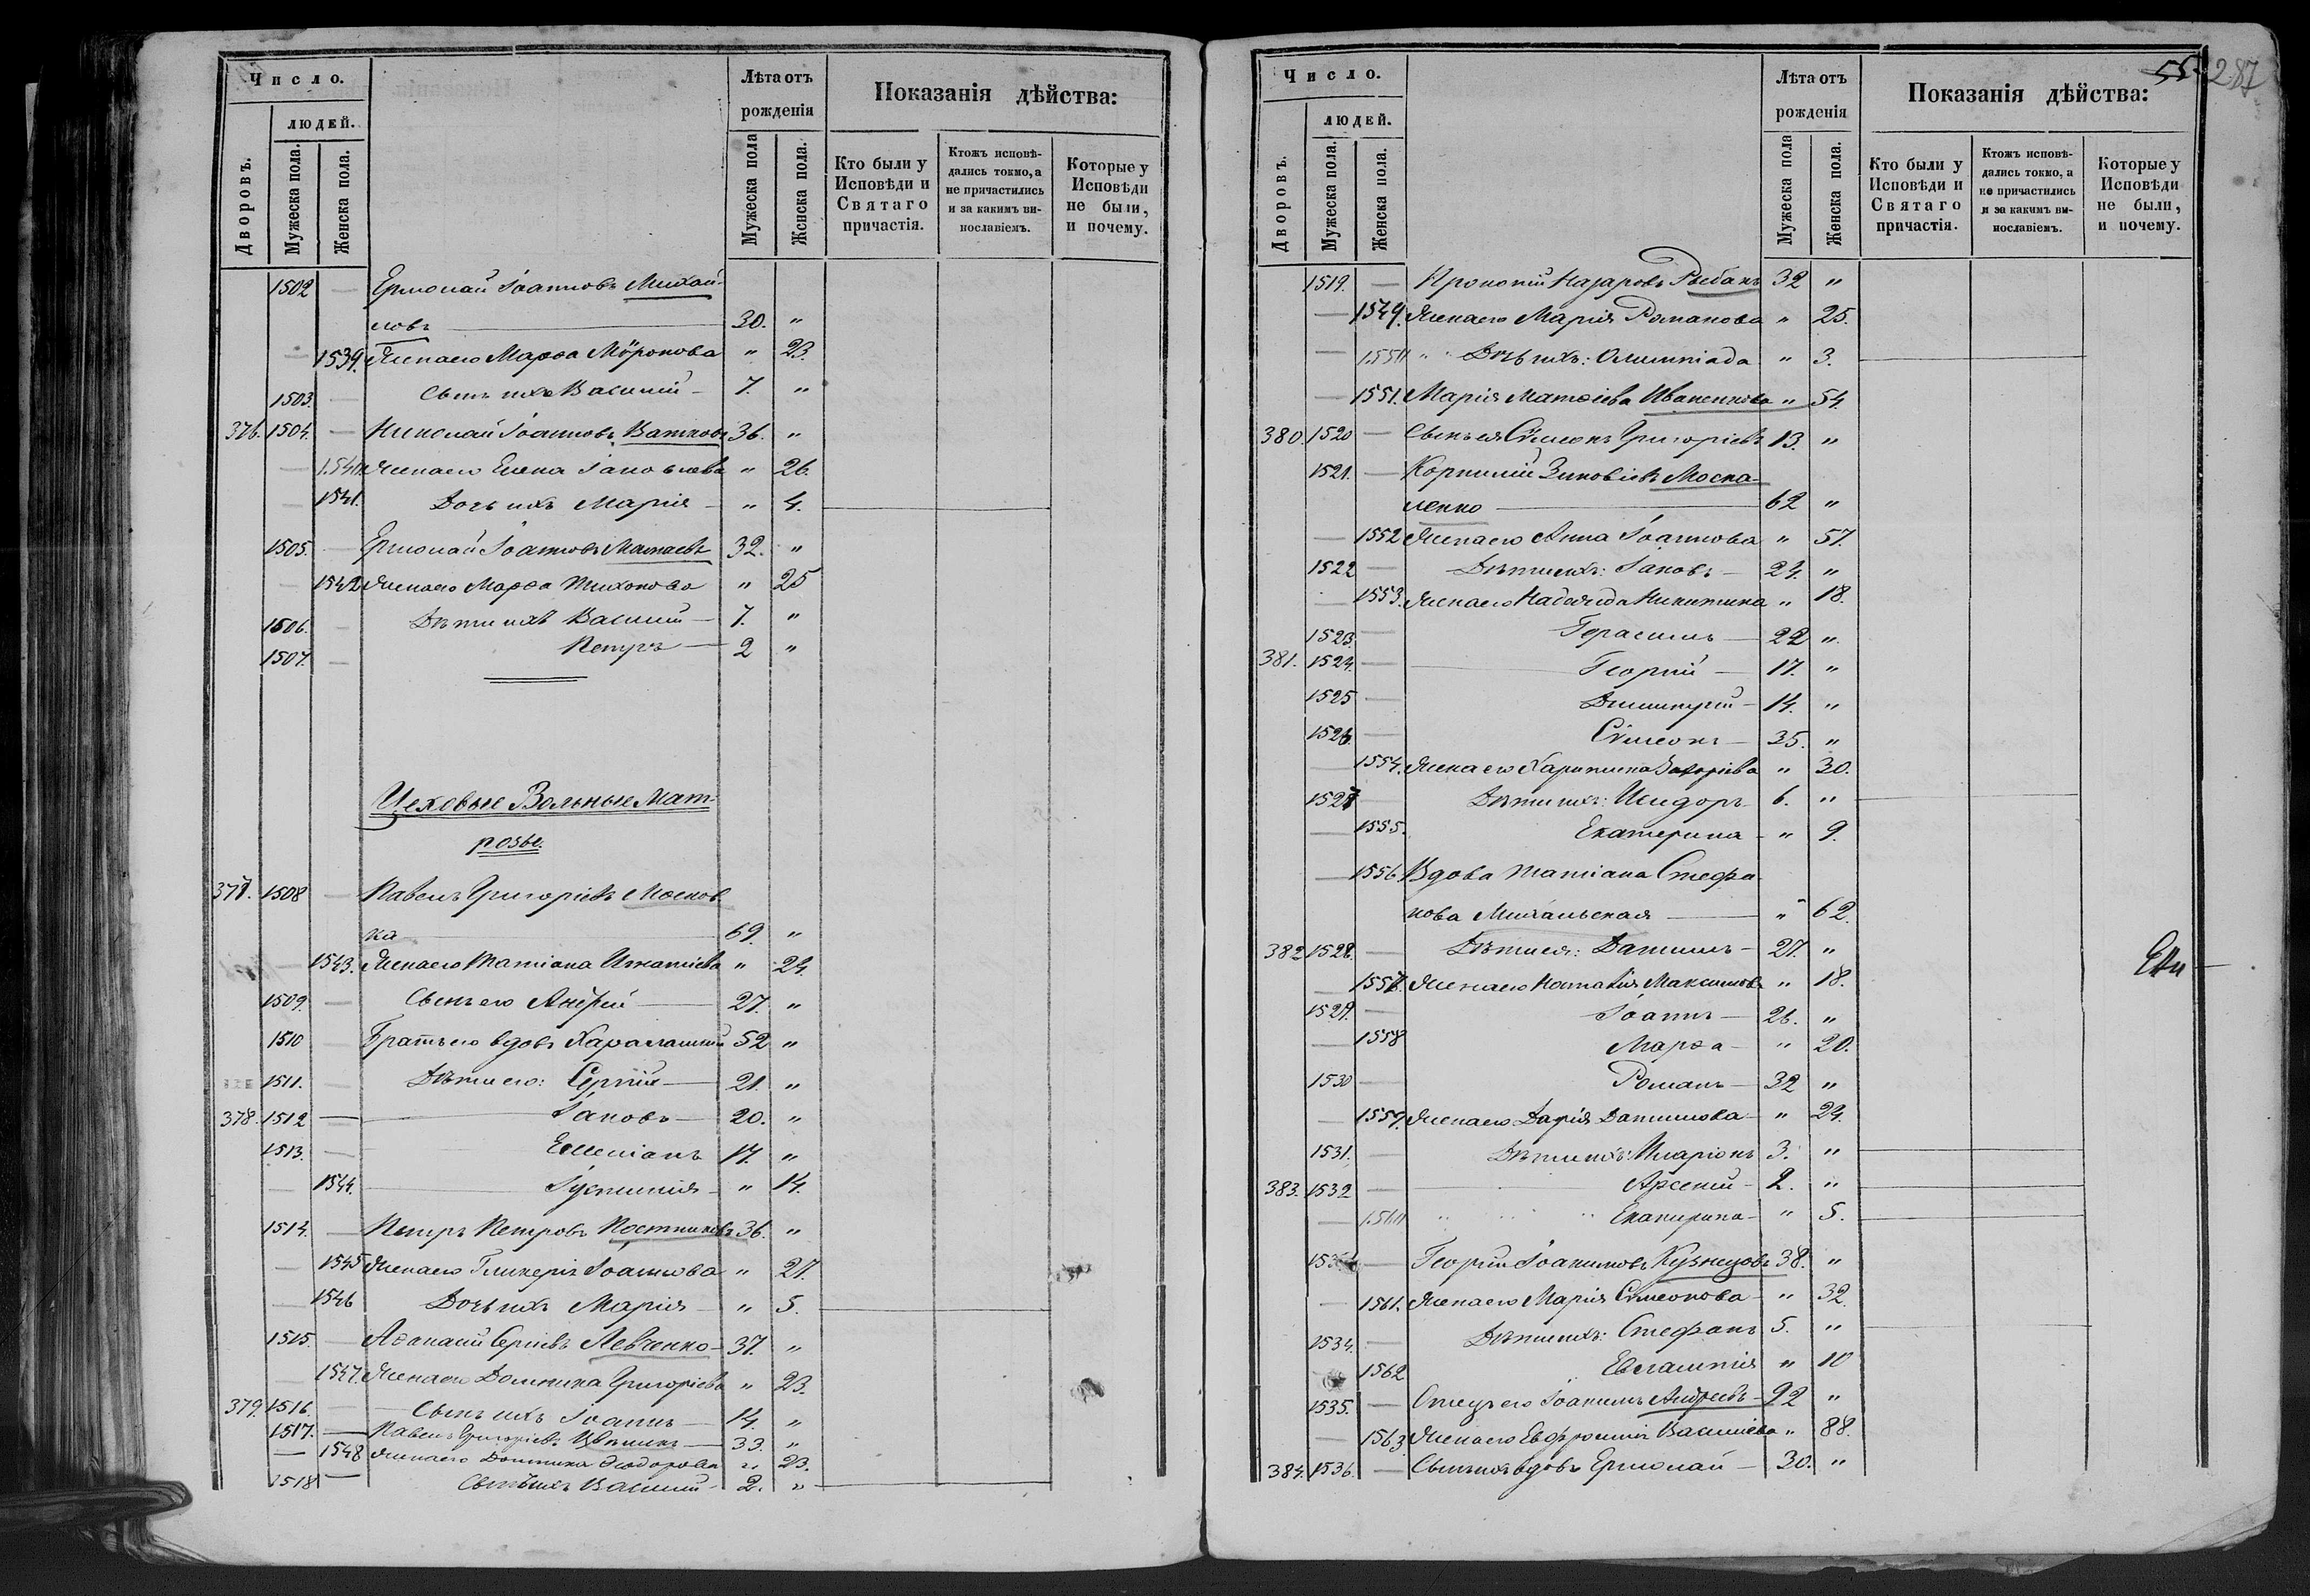 Число.
Лѣта отъ
рожденія
Показанія дѣйства:
людей.
Дворовъ.
Мужеска пола.
Женска пола.
Мужеска пола
Женска пола.
Кто были у
Исповѣди и
Святаго
причастія.
Ктожъ исповѣ-
дались токмо, а
не причастились
и за какимъ ви-
нословіемъ.
Которые у
Исповѣди
не были,
и почему.
1502 — Ермолай Іоанновъ Михай-
ловъ — 30. "
— 1539. Жена его Марѳа Мѵронова " 23.
1503. — Сынъ ихъ Василій — 7. "
376. 1504. — Николай Іоанновъ 36. "
— Жена его Елена Іаковлева " 26.
— 1541. Дочь ихъ Марія — " 4.
1505. — Ермолай Іоанновъ 32. "
— 1542 Жена его Марѳа Тихонова " 25
1506. — Дѣти ихъ Василій — 7. "
1507. — Петръ — 2 "
Цеховые Вольные Мат-
розы.
377. 1508 — Павелъ Григоріевъ Москов
ка — 69. "
— 1543. Жена его Татіана Игнатіева " 24.
1509. — Сынъ его Андрей — 27. "
1510 Братъ его вдовъ Харлампій 52 "
1511. — Дѣти его: Сергій — 21. "
378. 1512 — Іаковъ — 20. "
1513. — 17. "
— 1544. Іустинія — " 14.
1514. — Петръ Петровъ Постниковъ 36. "
— 1545 Жена его Гликерія Іоаннова " 27.
— 1546 Дочь ихъ Марія — " 5.
1515. — Аѳанасій Сергіевъ Левченко — 37. "
— 1547. Жена его Домника Григоріева " 23.
379. 1516. — Сынъ ихъ Іоаннъ — 14. "
1517. — Павелъ Григоріевъ — 33. "
— 1548 Жена его Домника Ѳеодорова " 23.
1518 — Сынъ ихъ Василій — 2. "
55 287
Число.
Лѣта отъ
рожденія
Показанія дѣйства:
людей.
Дворовъ.
Мужеска пола.
Женска пола.
Мужеска пола
Женска пола.
Кто были у
Исповѣди и
Святаго
причастія.
Ктожъ исповѣ-
дались токмо, а
не причастились
и за какимъ ви-
нословіемъ.
Которые у
Исповѣди
не были,
и почему.
1519. — Прокопій Назаровъ Рыбакъ 32 "
— 1549. Жена его Марія Романова " 25.
— Дочь ихъ: Олимпіада " 3.
— 1551. Марія Матѳіева Иваненкова " 54.
380. 1520 — Сынъ ея Сѵмеонъ Григоріевъ 13. "
1521. — Корнилій Зиновіевъ Моска-
ленко — 62 "
— 1552 Жена его Анна Іоаннова " 57.
1522 — Дѣти ихъ: Іаковъ — 24. "
— 1553. Жена его Надежда Никитина " 18.
1523. — Герасимъ — 22 "
381. 1524. — Георгій — 17. "
1525 — Димитрій — 14. "
1526. — Сѵмеонъ — 35. "
— 1554. Жена его Харитина Захаріева " 30.
1527 — Дѣти ихъ: Исидоръ 6. "
— 1555. Екатерина — " 9.
— 1556 Вдова Татіана Стефа-
нова — " 62.
382 1528. — Дѣти ея: Даніилъ — 27. "
— 1557. Жена его Наталія Максимова " 18.
1529. — Іоаннъ — 26. "
— 1558 Марѳа — " 20.
1530 — Романъ — 32 "
— 1559. Жена его Дарія Даниилова — " 24.
1531. — Дѣти ихъ: Иларіонъ 3. "
383. 1532 — Арсеній — 2. "
— Екатерина — " 5.
— Георгій Іоакимовъ Кузнецовъ 38. "
— 1561. Жена его Марія Сѵмеонова — " 32.
1534. — Дѣти ихъ: Стефанъ 5. "
1562 Евлампія " 10
1535. — Отецъ его Іоакимъ Андреевъ — 92 "
— 1563. Жена его Евфросинія Василіева " 88.
384. 1536. — Сынъ ихъ вдовъ Ермолай — 30. "